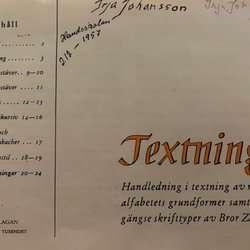 Irja Johansson
Irja Joh
Handerskolan
2/9 - 1957
håll
2
ng . 3
stäver . . 9—10
estäver . . 11
n . . . 12—13
kursiv 14—16
och
nbacher . . 17
sstil . . 18—19
ningar 20—24
LAGAN
TUSENDET
Textning
Handledning i textning av
alfabetets grundformer samt
gängse skrifttyper av Bror